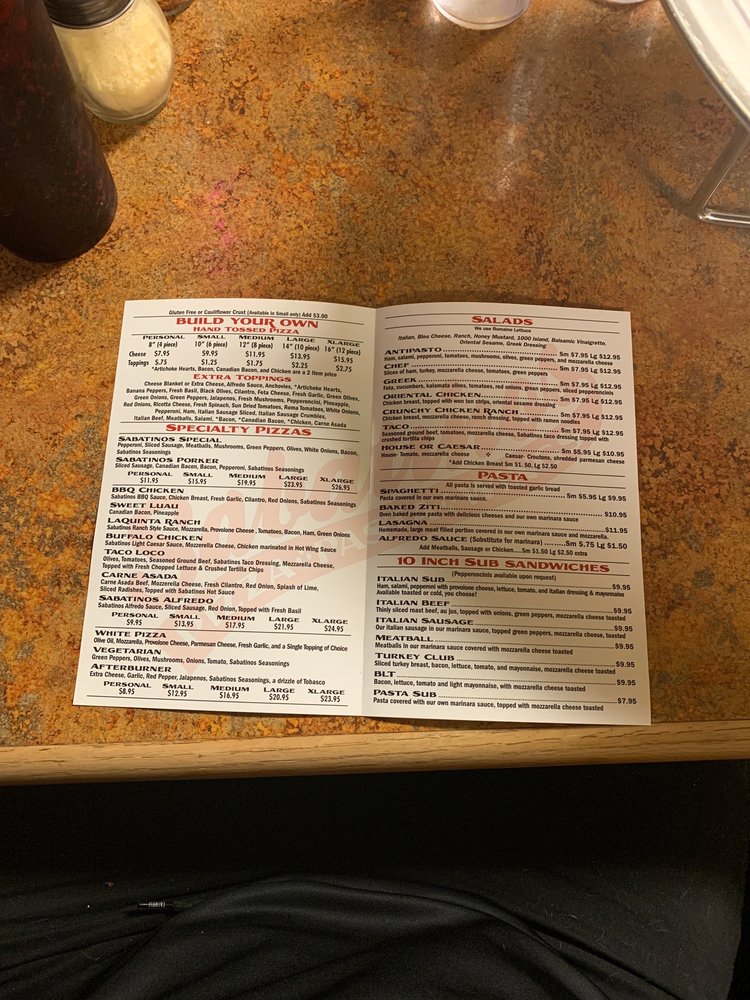 Gluten Free or Cauliflower Crust (Available in Small only) Add $3.00
BUILD YOUR OWN
HAND TOSSED PIZZA
PERSONAL SMALL MEDIUM LARGE XLARGE
8" (4 piece) 10" (6 piece) 12" (8 piece) 14" (10 piece) 16" (12 piece)
Cheese $7.95 $9.95 $11.95 $13.95 $15.95
Toppings $.75 $1.25 $1.75 $2.25 $2.75
*Artichoke Hearts, Bacon, Canadian Bacon, and Chicken are a 2 item price
EXTRA TOPPINGS
Cheese Blanket or Extra Cheese, Alfredo Sauce, Anchovies, *Artichoke Hearts,
Banana Peppers, Fresh Basil, Black Olives, Cilantro, Feta Cheese, Fresh Garlic, Green Olives,
Green Onions, Green Peppers, Jalapenos, Fresh Mushrooms, Pepperoncini, Pineapple,
Red Onions, Ricotta Cheese, Fresh Spinach, Sun Dried Tomatoes, Roma Tomatoes, White Onions,
Pepperoni, Ham, Italian Sausage Sliced, Italian Sausage Crumbles,
Italian Beef, Meatballs, Salami, *Bacon, *Canadian Bacon, *Chicken, Carne Asada
SPECIALTY PIZZAS
SABATINOS SPECIAL
Pepperoni, Sliced Sausage, Meatballs, Mushrooms, Green Peppers, Olives, White Onions, Bacon,
Sabatinos Seasonings
SABATINOS PORKER
Sliced Sausage, Canadian Bacon, Bacon, Pepperoni, Sabatinos Seasonings
PERSONAL SMALL MEDIUM LARGE XLARGE
$11.95 $15.95 $19.95 $23.95 $26.95
BBQ CHICKEN
Sabatinos BBQ Sauce, Chicken Breast, Fresh Garlic, Cilantro, Red Onions, Sabatinos Seasonings
SWEET LUAU
Canadian Bacon, Pineapple
LAQUINTA RANCH
Sabatinos Ranch Style Sauce, Mozzarella, Provolone Cheese, Tomatoes, Bacon, Ham, Green Onions
BUFFALO CHICKEN
Sabatinos Light Caesar Sauce, Mozzarella Cheese, Chicken marinated in Hot Wing Sauce
TACO LOCO
Olives, Tomatoes, Seasoned Ground Beef, Sabatinos Taco Dressing, Mozzarella Cheese,
Topped with Fresh Chopped Lettuce & Crushed Tortilla Chips
CARNE ASADA
Carne Asada Beef, Mozzerella Cheese, Fresh Cilantro, Red Onion, Splash of Lime,
Sliced Radishes, Topped with Sabatinos Hot Sauce
SABATINOS ALFREDO
Sabatinos Alfredo Sauce, Sliced Sausage, Red Onion, Topped with Fresh Basil
PERSONAL SMALL MEDIUM LARGE XLARGE
$9.95 $13.95 $17.95 $21.95 $24.95
WHITE PIZZA
Olive Oil, Mozzarella, Provolone Cheese, Parmesan Cheese, Fresh Garlic, and a Single Topping of Choice
VEGETARIAN
Green Peppers, Olives, Mushrooms, Onions, Tomato, Sabatinos Seasonings
AFTERBURNER
Extra Cheese, Garlic, Red Pepper, Jalapenos, Sabatinos Seasonings, a drizzle of Tobasco
PERSONAL SMALL MEDIUM LARGE XLARGE
$8.95 $12.95 $16.95 $20.95 $23.95
SALADS
We use Romaine Lettuce
Italian, Bleu Cheese, Ranch, Honey Mustard, 1000 Island, Balsamic Vinaigrette,
Oriental Sesame, Greek Dressing
ANTIPASTO Sm $7.95 Lg $12.95
Ham, salami, pepperoni, tomatoes, mushrooms, olives, green peppers, and mozzarella cheese
CHEF Sm $7.95 Lg $12.95
Slices of ham, turkey, mozzarella cheese, tomatoes, green peppers
GREEK Sm $7.95 Lg $12.95
Feta, cucumbers, kalamata olives, tomatoes, red onions, green peppers, sliced pepperoncinis
ORIENTAL CHICKEN Sm $7.95 Lg $12.95
Chicken breast, topped with won ton strips, oriental sesame dressing
CRUNCHY CHICKEN RANCH Sm $7.95 Lg $12.95
Chicken breast, mozzarella cheese, ranch dressing, topped with ramen noodles
TACO Sm $7.95 Lg $12.95
Seasoned ground beef, tomatoes, mozzarella cheese, Sabatinos taco dressing topped with
crushed tortilla chips
HOUSE OR CAESAR Sm $5.95 Lg $10.95
House- Tomato, mozzarella cheese Caesar- Croutons, shredded parmesan cheese
*Add Chicken Breast Sm $1.50, Lg $2.50
PASTA
All pasta is served with toasted garlic bread
SPAGHETTI Sm $5.95 Lg $9.95
Pasta covered in our own marinara sauce.
BAKED ZITI $10.95
Oven baked penne pasta with delicious cheeses and our own marinara sauce
LASAGNA $11.95
Homemade, large meat filled portion covered in our own marinara sauce and mozzarella.
ALFREDO SAUCE (Substitute for marinara) Sm $.75 Lg $1.50
Add Meatballs, Sausage or Chicken....Sm $1.50 Lg $2.50 extra
10 INCH SUB SANDWICHES
(Pepperoncinis available upon request)
ITALIAN SUB $9.95
Ham, salami, pepperoni with provolone cheese, lettuce, tomato, and Italian dressing & mayonnaise
Available toasted or cold, you choose!
ITALIAN BEEF $9.95
Thinly sliced roast beef, au jus, topped with onions, green peppers, mozzarella cheese toasted
ITALIAN SAUSAGE $9.95
Our italian sausage in our marinara sauce, topped green peppers, mozzarella cheese, toasted
MEATBALL $9.95
Meatballs in our marinara sauce covered with mozzarella cheese toasted
TURKEY CLUB $9.95
Sliced turkey breast, bacon, lettuce, tomato, and mayonnaise, mozzarella cheese toasted
BLT $9.95
Bacon, lettuce, tomato and light mayonnaise, with mozzarella cheese toasted
PASTA SUB $7.95
Pasta covered with our own marinara sauce, topped with mozzarella cheese toasted